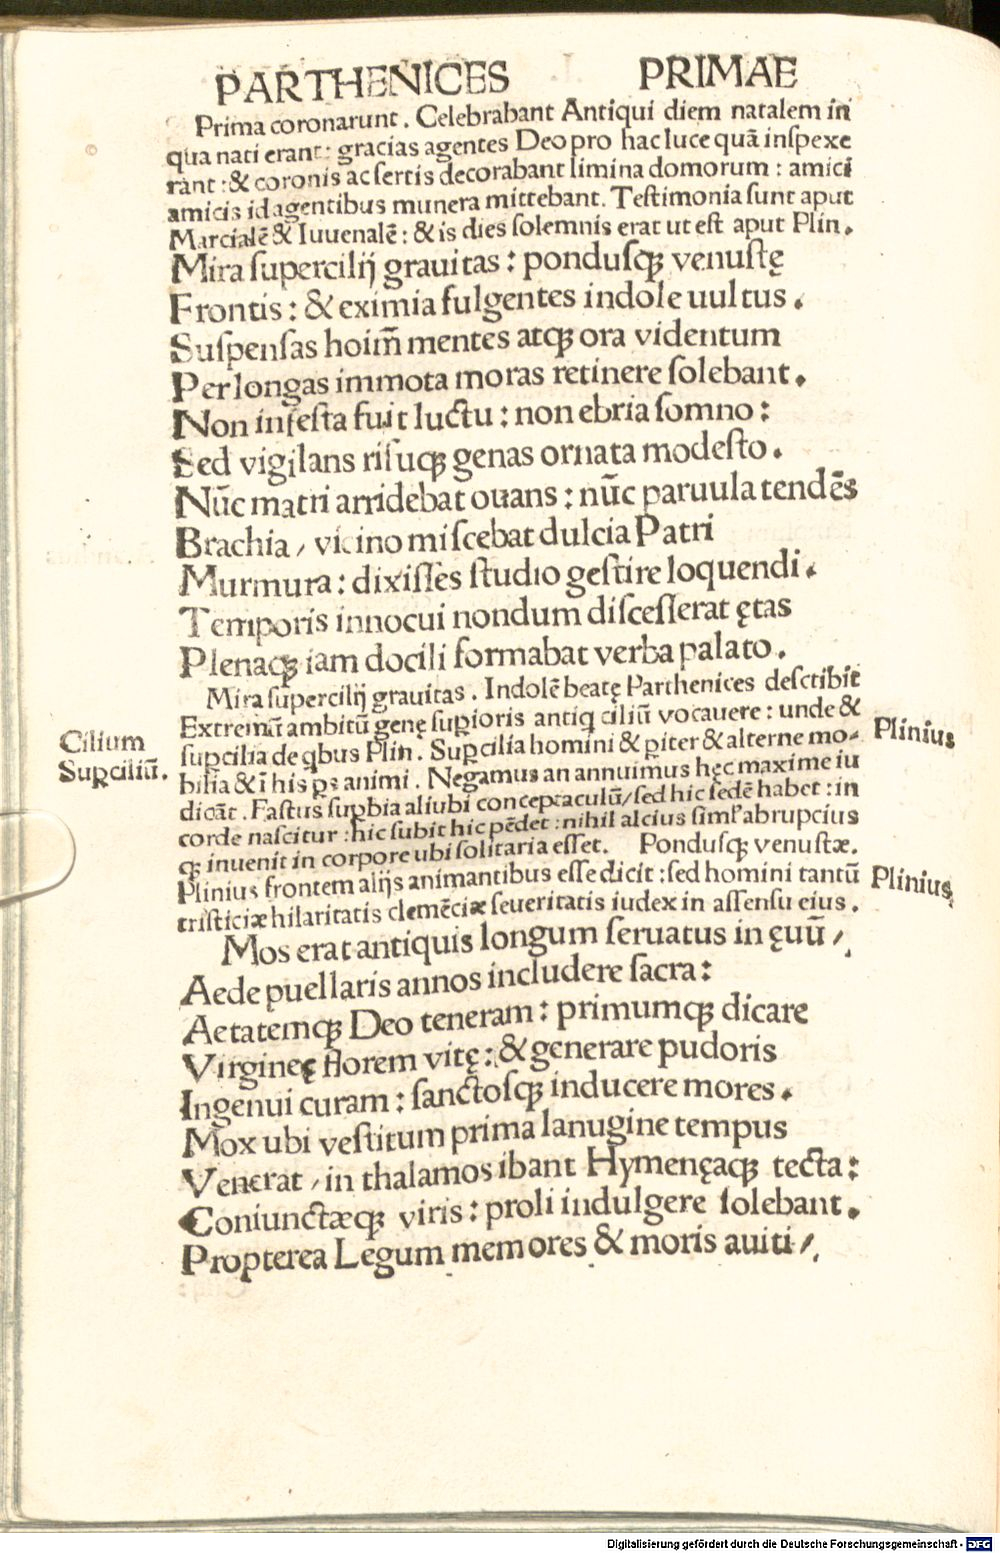 PARTHENICES PRIMAE
Prima coronarunt. Celebrabant Antiqui diem natalem in
qua nati erant: gracias agentes Deo pro hac luce quā inſpexe
rant: & coronis ac ſertis decorabant limina domorum: amici
amicis id agentibus munera mittebant. Teſtimonia ſunt aput
Marcialē & Iuuenalē: & is dies ſolemnis erat ut eſt aput Plin.
Mira ſupercilij grauitas: ponduſqꝫ venuſtę
Frontis: & eximia fulgentes indole uultus.
Suſpenſas hoim̄ mentes atqꝫ ora videntum
Per longas immota moras retinere ſolebant.
Non infeſta fuit luctu: non ebria ſomno:
Sed vigilans riſuqꝫ genas ornata modeſto.
Nūc matri arridebat ouans: nūc paruula tendēs
Brachia / vicino miſcebat dulcia Patri
Murmura: dixiſſes ſtudio geſtire loquendi.
Temporis innocui nondum diſceſſerat ętas
Plenaqꝫ iam docili formabat verba palato.
Mira ſupercilij grauitas. Indolē beatę Parthenices deſcribit
Extremū ambitū genę ſuꝑioris antiq ciliū vocauere: unde &
Cilium
ſuꝑcilia de qbus Plin. Suꝑcilia homini & ꝑiter & alterne mo-
Plinius
Suꝑciliū.
bilia & ī his ꝑs animi. Negamus an annuimus hęc maxime iu
dicāt. Faſtus ſuꝑbia aliubi conceptaculū / ſed hic ſedē habet: in
corde naſcitur: hic ſubit hic pēdet: nihil alcius ſimꝉ abrupcius
qꝫ inuenit in corpore ubi ſolitaria eſſet. Ponduſqꝫ venuſtæ.
Plinius frontem alijs animantibus eſſe dicit: ſed homini tantū
Plinius
triſticiæ hilaritatis clemēciæ ſeueritatis iudex in aſſenſu eius.
Mos erat antiquis longum ſeruatus in ęuū /
Aede puellaris annos includere ſacra:
Aetatemqꝫ Deo teneram: primumqꝫ dicare
Virgineę florem vitę: & generare pudoris
Ingenui curam: ſanctoſqꝫ inducere mores.
Mox ubi veſtitum prima lanugine tempus
Venerat / in thalamos ibant Hymenęaqꝫ tecta:
Coniunctæqꝫ viris: proli indulgere ſolebant.
Propterea Legum memores & moris auiti /
Digitalisierung gefördert durch die Deutsche Forschungsgemeinschaft - DFG